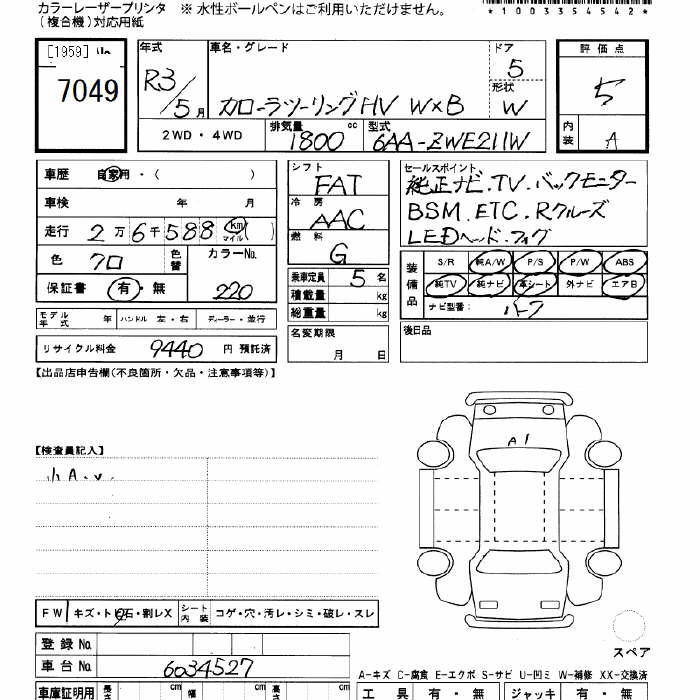 カラーレーザープリンタ ※ 水性ボールペンはご利用いただけません。
（複合機）対応用紙
*100354542*
[1959]
7049
年式 車名・グレード ドア 評価点
R3/5月 カローラツーリングHV W×B 5 5
形状 W
2WD・4WD 排気量 1800 cc 型式 6AA-ZWE211W 内装 A
車歴 自家用・（ ）
車検 年 月
走行 2万6千588 km マイル（ ）
色 クロ 色替 カラーNo. 220
保証書 有・無
シフト FAT
冷房 AAC
燃料 G
乗車定員 5名
積載量 kg
総重量 kg
セールスポイント
純正ナビ.TV.バックモニター
BSM.ETC.Rクルーズ
LEDヘッド.フォグ
装備品 S/R 純A/W P/S P/W ABS
純TV 純ナビ 革シート 外ナビ エアB
ナビ型番： ハーフ
モデル年式 年 ハンドル 左・右 ディーラー・並行
名変期限 月 日
後日品
リサイクル料金 9440 円 預託済
【出品店申告欄（不良箇所・欠品・注意事項等）】
A1
【検査員記入】
小A.v.
FW キズ・トビ石・割レX シート内装 コゲ・穴・汚レ・シミ・破レ・スレ
登録No.
スペア
車台No. 6034527
A-キズ C-腐食 E-エクボ S-サビ U-凹ミ W-補修 XX-交換済
車庫証明用 長さ cm 幅 cm 高さ cm
工具 有・無 ジャッキ 有・無